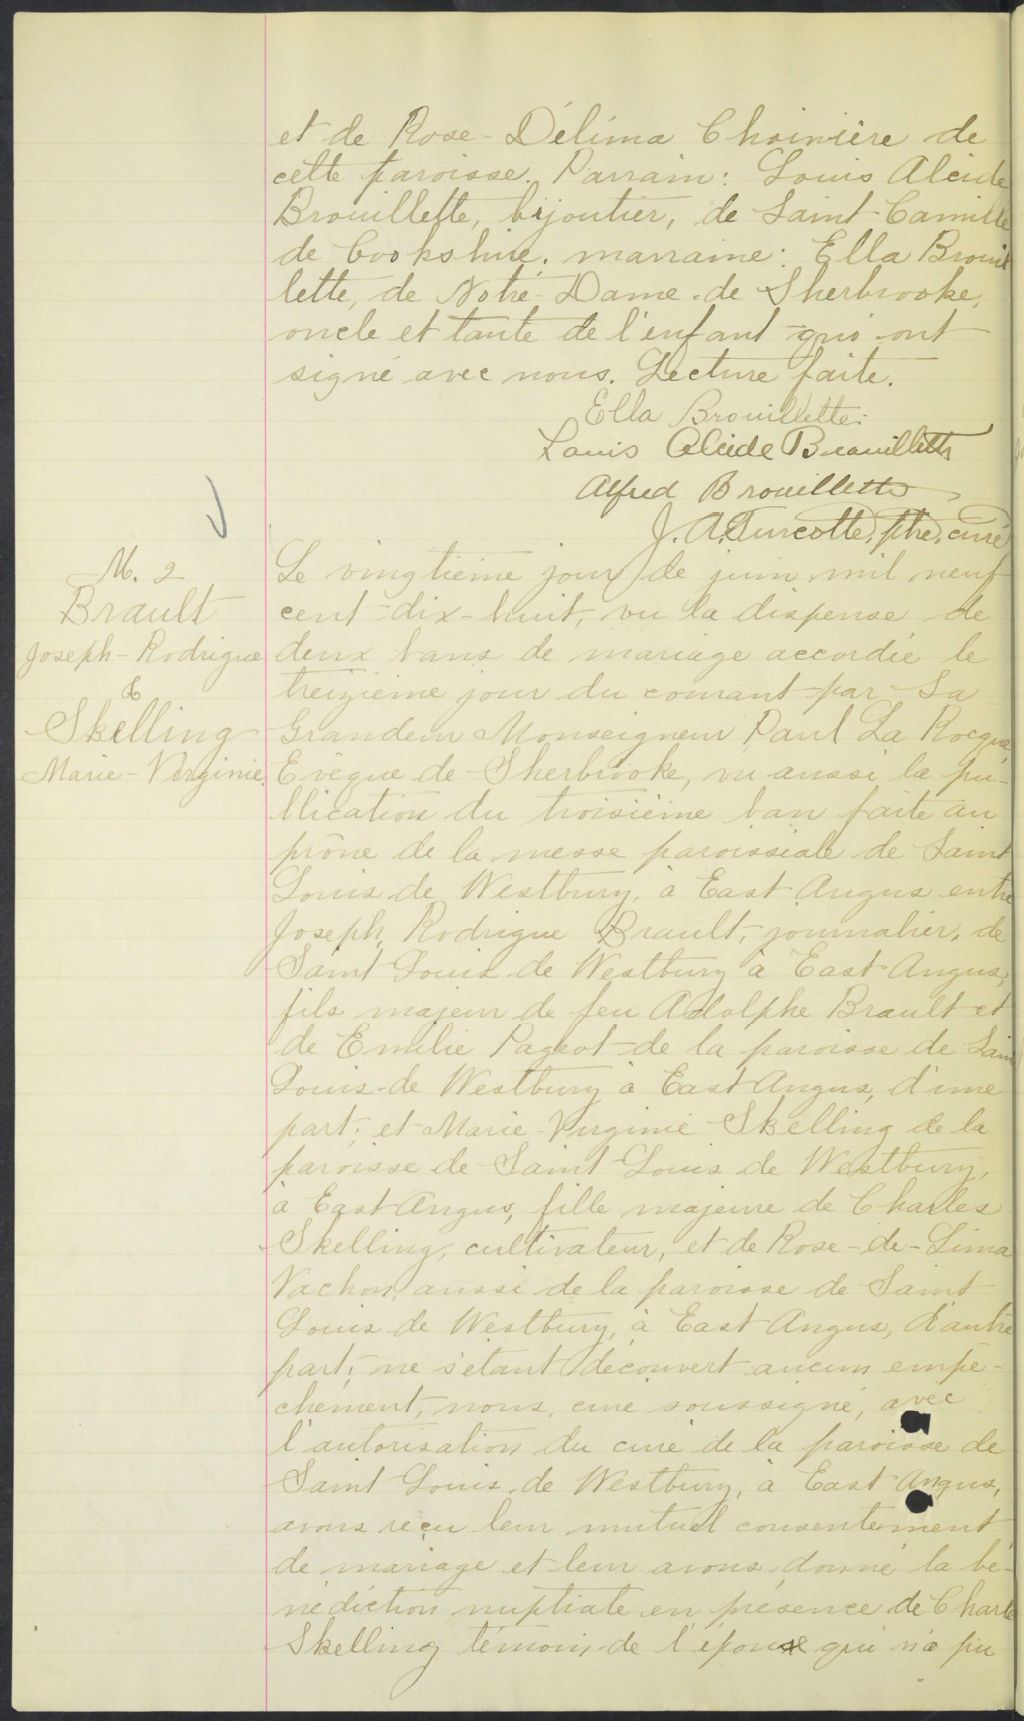 et de Rose-Délima Choinière de
cette paroisse. Parrain: Louis Alcide
Brouillette, bijoutier, de Saint-Camille
de Cookshire. marraine: Ella Brouil
lette, de Notre-Dame-de Sherbrooke,
oncle et tante de l'enfant qui ont
signé avec nous. Lecture faite.
Ella Brouillette.
Louis Alcide Brouillette
Alfred Brouillette
J. A. Turcotte, ptre, curé
M. 2
Brault
Joseph-Rodrigue
&
Skelling
Marie-Virginie
Le vingtième jour de juin mil neuf
cent-dix-huit, vu la dispense de
deux bans de mariage accordée le
treizième jour du courant par Sa
Grandeur Monseigneur Paul La Rocque
Evêque de Sherbrooke, vu aussi la pu-
blication du troisième ban faite au
prône de la messe paroissiale de Saint
Louis de Westbury, à East Angus entre
Joseph Rodrigue Brault, journalier, de
Saint Louis de Westbury à East Angus,
fils majeur de feu Adolphe Brault et
de Emilie Pageot de la paroisse de Sain
Louis-de Westbury à East Angus, d'une
part; et Marie-Virginie Skelling de la
paroisse de Saint Louis de Westbury,
à East Angus, fille majeure de Charles
Skelling, cultivateur, et de Rose-de-Lima
Vachon, aussi de la paroisse de Saint
Louis de Westbury, à East Angus, d'autre
part; ne s'étant découvert aucun empê-
chement, nous, curé soussigné, avec
l'autorisation du curé de la paroisse de
Saint Louis de Westbury, à East Angus,
avons reçu leur mutuel consentement
de mariage et leur avons donné la bé-
nédiction nuptiale en présence de Charle
Skelling témoin de l'épouse qui n'a pu